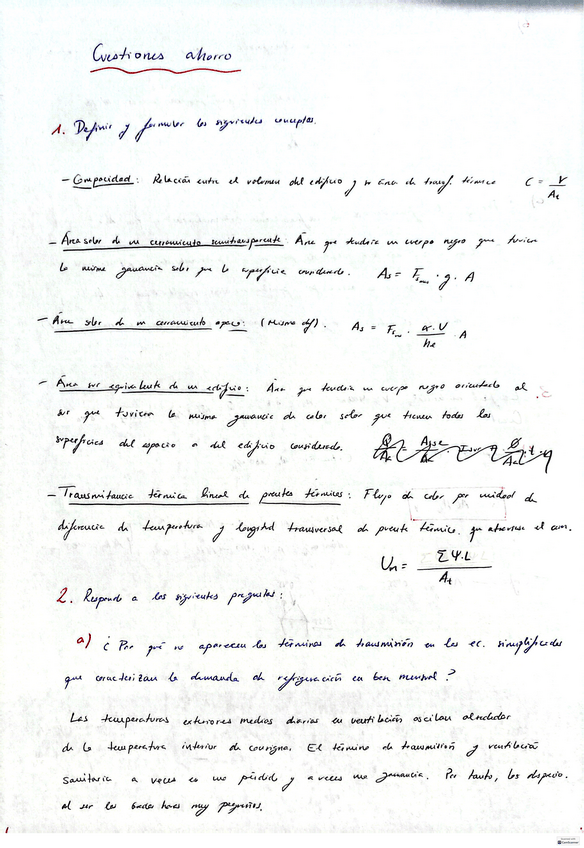 Cuestiones ahorro
1. Definir y formular los siguientes conceptos.
- Compacidad: Relación entre el volumen del edificio y su área de transf. térmica C = V / At
- Área solar de un cerramiento semitransparente: Área que tendría un cuerpo negro que tuviera
la misma ganancia solar que la superficie considerada. As = Fs · g · A
- Área solar de un cerramiento opaco: (Misma def). As = Fs · α·U / he · A
- Área sur equivalente de un edificio: Área que tendría un cuerpo negro orientado al
sur que tuviera la misma ganancia de calor solar que tienen todas las
superficies del espacio o del edificio considerado.
- Transmitancia térmica lineal de puentes térmicos: Flujo de calor por unidad de
diferencia de temperatura y longitud transversal de puente térmico que atraviesa el cerr.
Um = ΣΨ·L / At
2. Responde a las siguientes preguntas:
a) ¿Por qué no aparecen los términos de transmisión en las ec. simplificadas
que caracterizan la demanda de refrigeración en base mensual?
Las temperaturas exteriores medias diarias en ventilación oscilan alrededor
de la temperatura interior de consigna. El término de transmisión y ventilación
sanitaria a veces es una pérdida y a veces una ganancia. Por tanto, los desprecio.
al ser las muy pequeños.